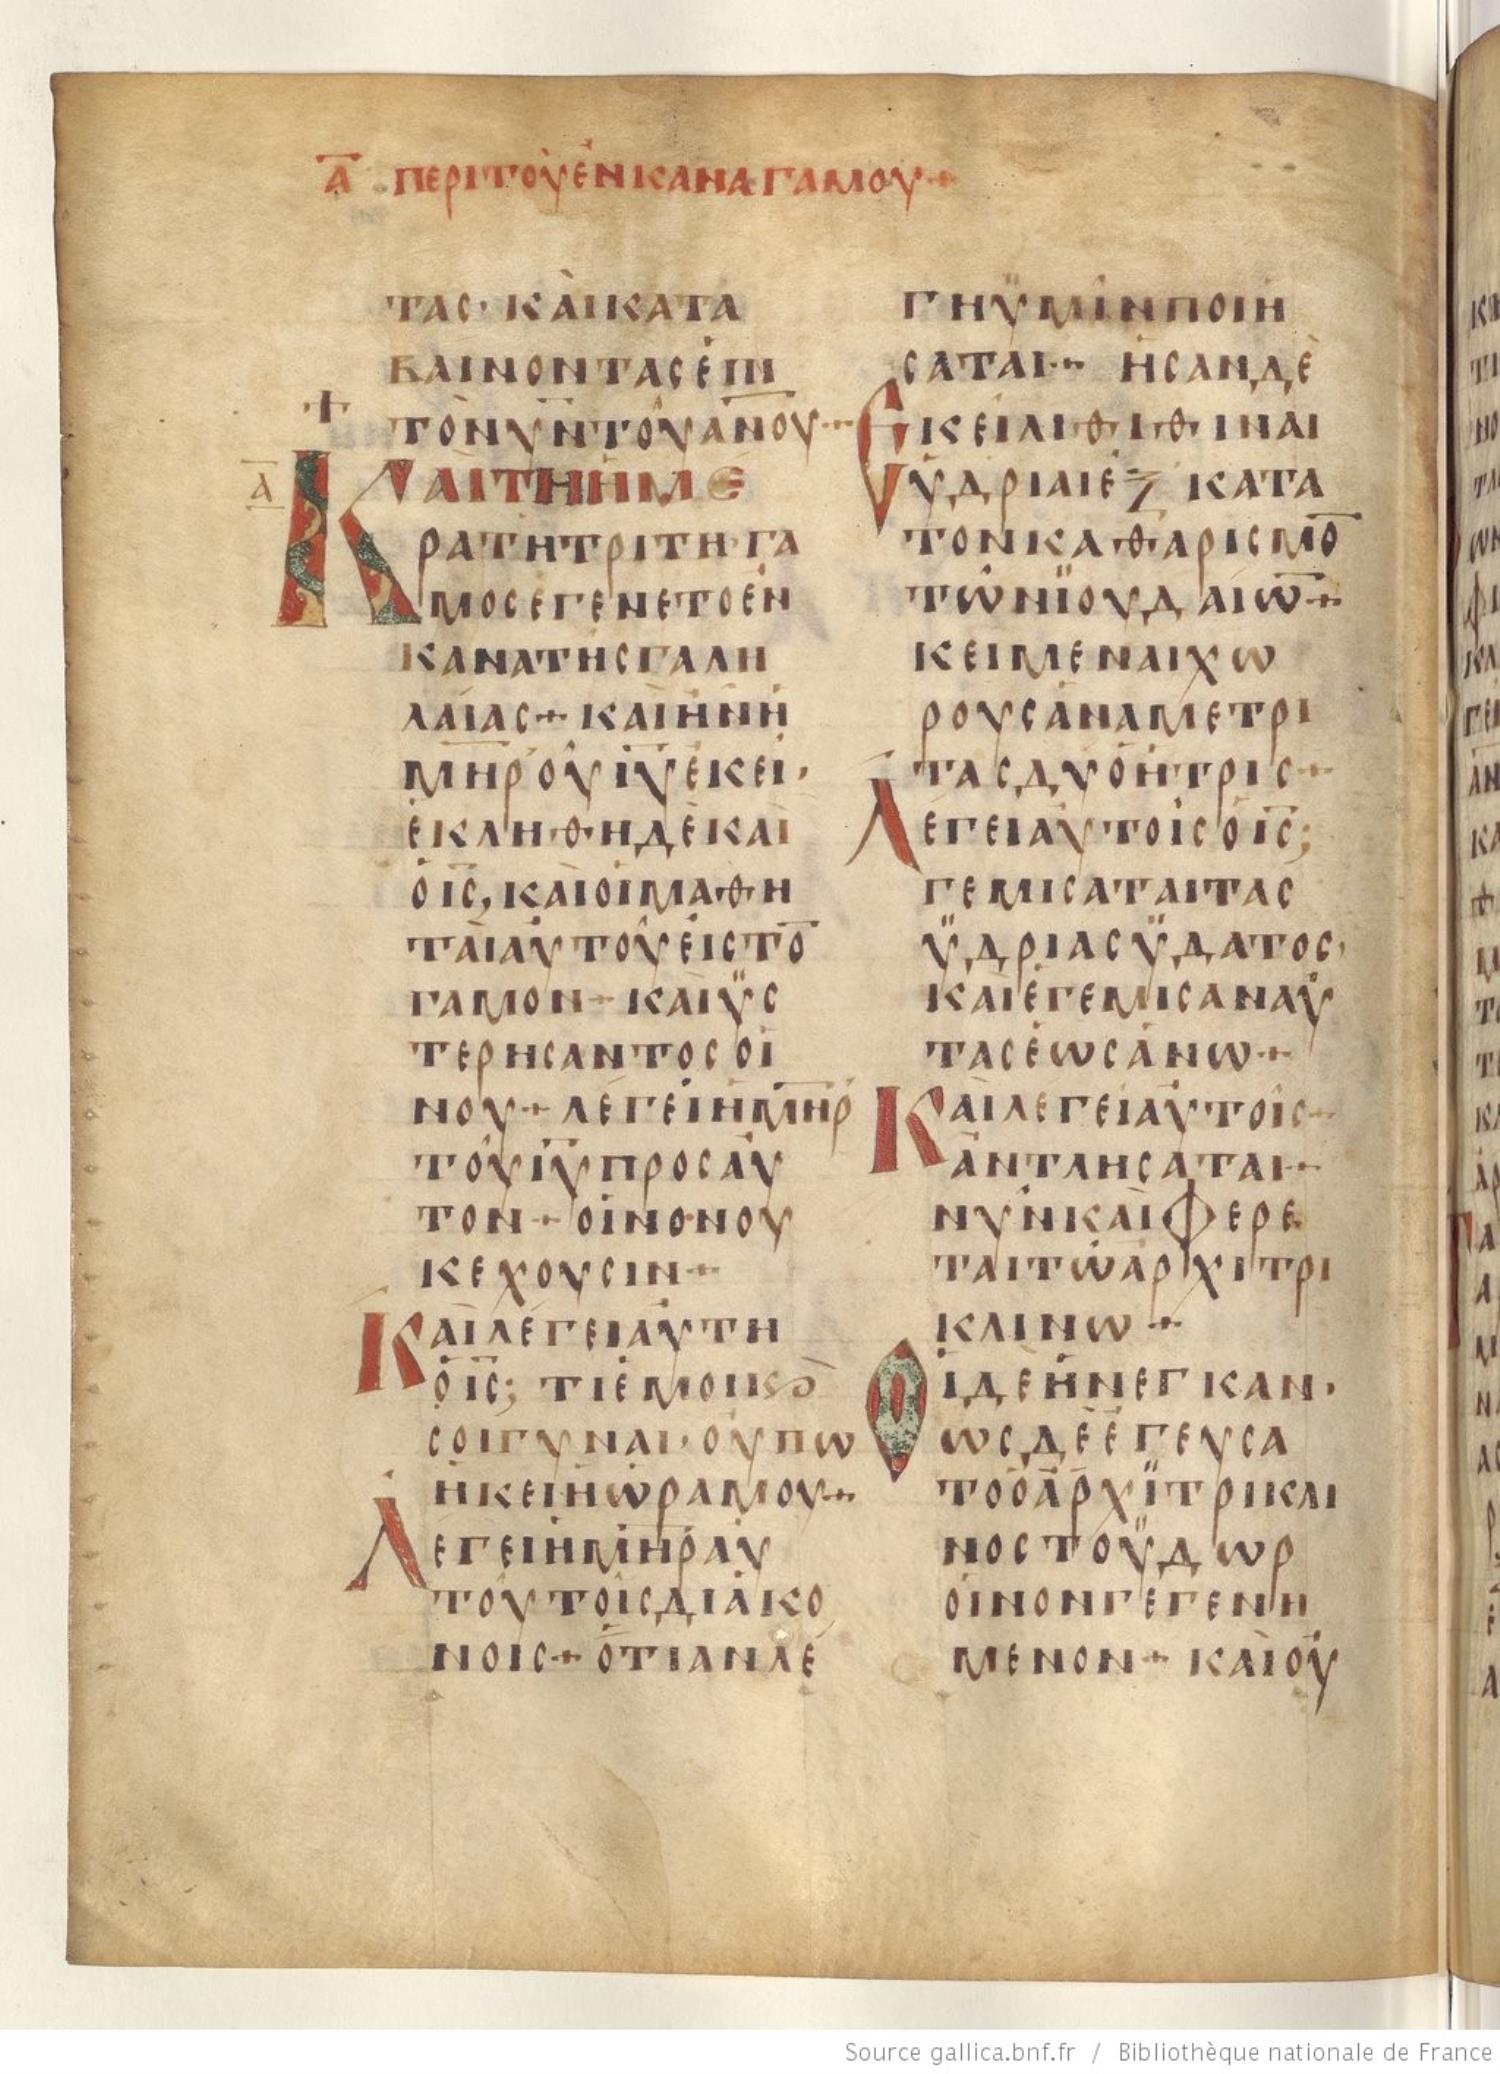 Α ΠΕΡΙ ΤΟΥ ΕΝ ΚΑΝΑ ΓΑΜΟΥ
ΤΑΣ· ΚΑΙ ΚΑΤΑ
ΒΑΙΝΟΝΤΑΣ ΕΠΙ
ΤΟΝ ΥΝ ΤΟΥ ΑΝΟΥ
Α
ΚΑΙ ΤΗ ΗΜΕ
ΡΑ ΤΗ ΤΡΙΤΗ· ΓΑ
ΜΟΣ ΕΓΕΝΕΤΟ ΕΝ
ΚΑΝΑ ΤΗΣ ΓΑΛΗ
ΛΑΙΑΣ + ΚΑΙ ΗΝ Η
ΜΗΡ Ο ΥΙΥ ΕΚΕΙ,
ΕΚΛΗΘΗ ΔΕ ΚΑΙ
Ο ΙΣ, ΚΑΙ ΟΙ ΜΑΘΗ
ΤΑΙ ΑΥΤΟΥ ΕΙΣ ΤΟ
ΓΑΜΟΝ + ΚΑΙ ΥΣ
ΤΕΡΗΣΑΝΤΟΣ ΟΙ
ΝΟΥ + ΛΕΓΕΙ Η ΜΗΡ
ΤΟΥ ΙΥ ΠΡΟΣ ΑΥ
ΤΟΝ + ΟΙΝΟΝ ΟΥ
Κ ΕΧΟΥΣΙΝ +
ΚΑΙ ΛΕΓΕΙ ΑΥΤΗ
Ο ΙΣ; ΤΙ ΕΜΟΙ Κ
ΣΟΙ ΓΥΝΑΙ· ΟΥΠΩ
ΗΚΕΙ Η ΩΡΑ ΜΟΥ +
ΛΕΓΕΙ Η ΜΗΡ ΑΥ
ΤΟΥ ΤΟΙΣ ΔΙΑΚΟ
ΝΟΙΣ + ΟΤΙ ΑΝ ΛΕ
ΓΗ ΫΜΙΝ ΠΟΙΗ
ΣΑΤΑΙ + ΗΣΑΝ ΔΕ
ΕΚΕΙ ΛΙΘΙΘΙΝΑΙ
ΥΔΡΙΑΙ ΕΖ ΚΑΤΑ
ΤΟΝ ΚΑΘΑΡΙΣΜΟ
ΤΩΝ ΪΟΥΔΑΙΩ +
ΚΕΙΜΕΝΑΙ ΧΩ
ΡΟΥΣΑΝ ΑΝΑ ΜΕΤΡΙ
ΤΑΣ ΔΥΟ Η ΤΡΙΣ +
ΛΕΓΕΙ ΑΥΤΟΙΣ Ο ΙΣ;
ΓΕΜΙΣΑΤΑΙ ΤΑΣ
ΫΔΡΙΑΣ ΫΔΑΤΟΣ,
ΚΑΙ ΕΓΕΜΙΣΑΝ ΑΥ
ΤΑΣ ΕΩΣ ΑΝΩ +
ΚΑΙ ΛΕΓΕΙ ΑΥΤΟΙΣ +
ΑΝΤΛΗΣΑΤΑΙ +
ΝΥΝ ΚΑΙ ΦΕΡΕ
ΤΑΙ ΤΩ ΑΡΧΙΤΡΙ
ΚΛΙΝΩ +
ΟΙ ΔΕ ΗΝΕΓΚΑΝ,
ΩΣ ΔΕ ΕΓΕΥΣΑ
ΤΟ Ο ΑΡΧΪΤΡΙΚΛΙ
ΝΟΣ ΤΟ ΫΔΩΡ
ΟΙΝΟΝ ΓΕΓΕΝΗ
ΜΕΝΟΝ + ΚΑΙ ΟΥ
Source gallica.bnf.fr / Bibliothèque nationale de France